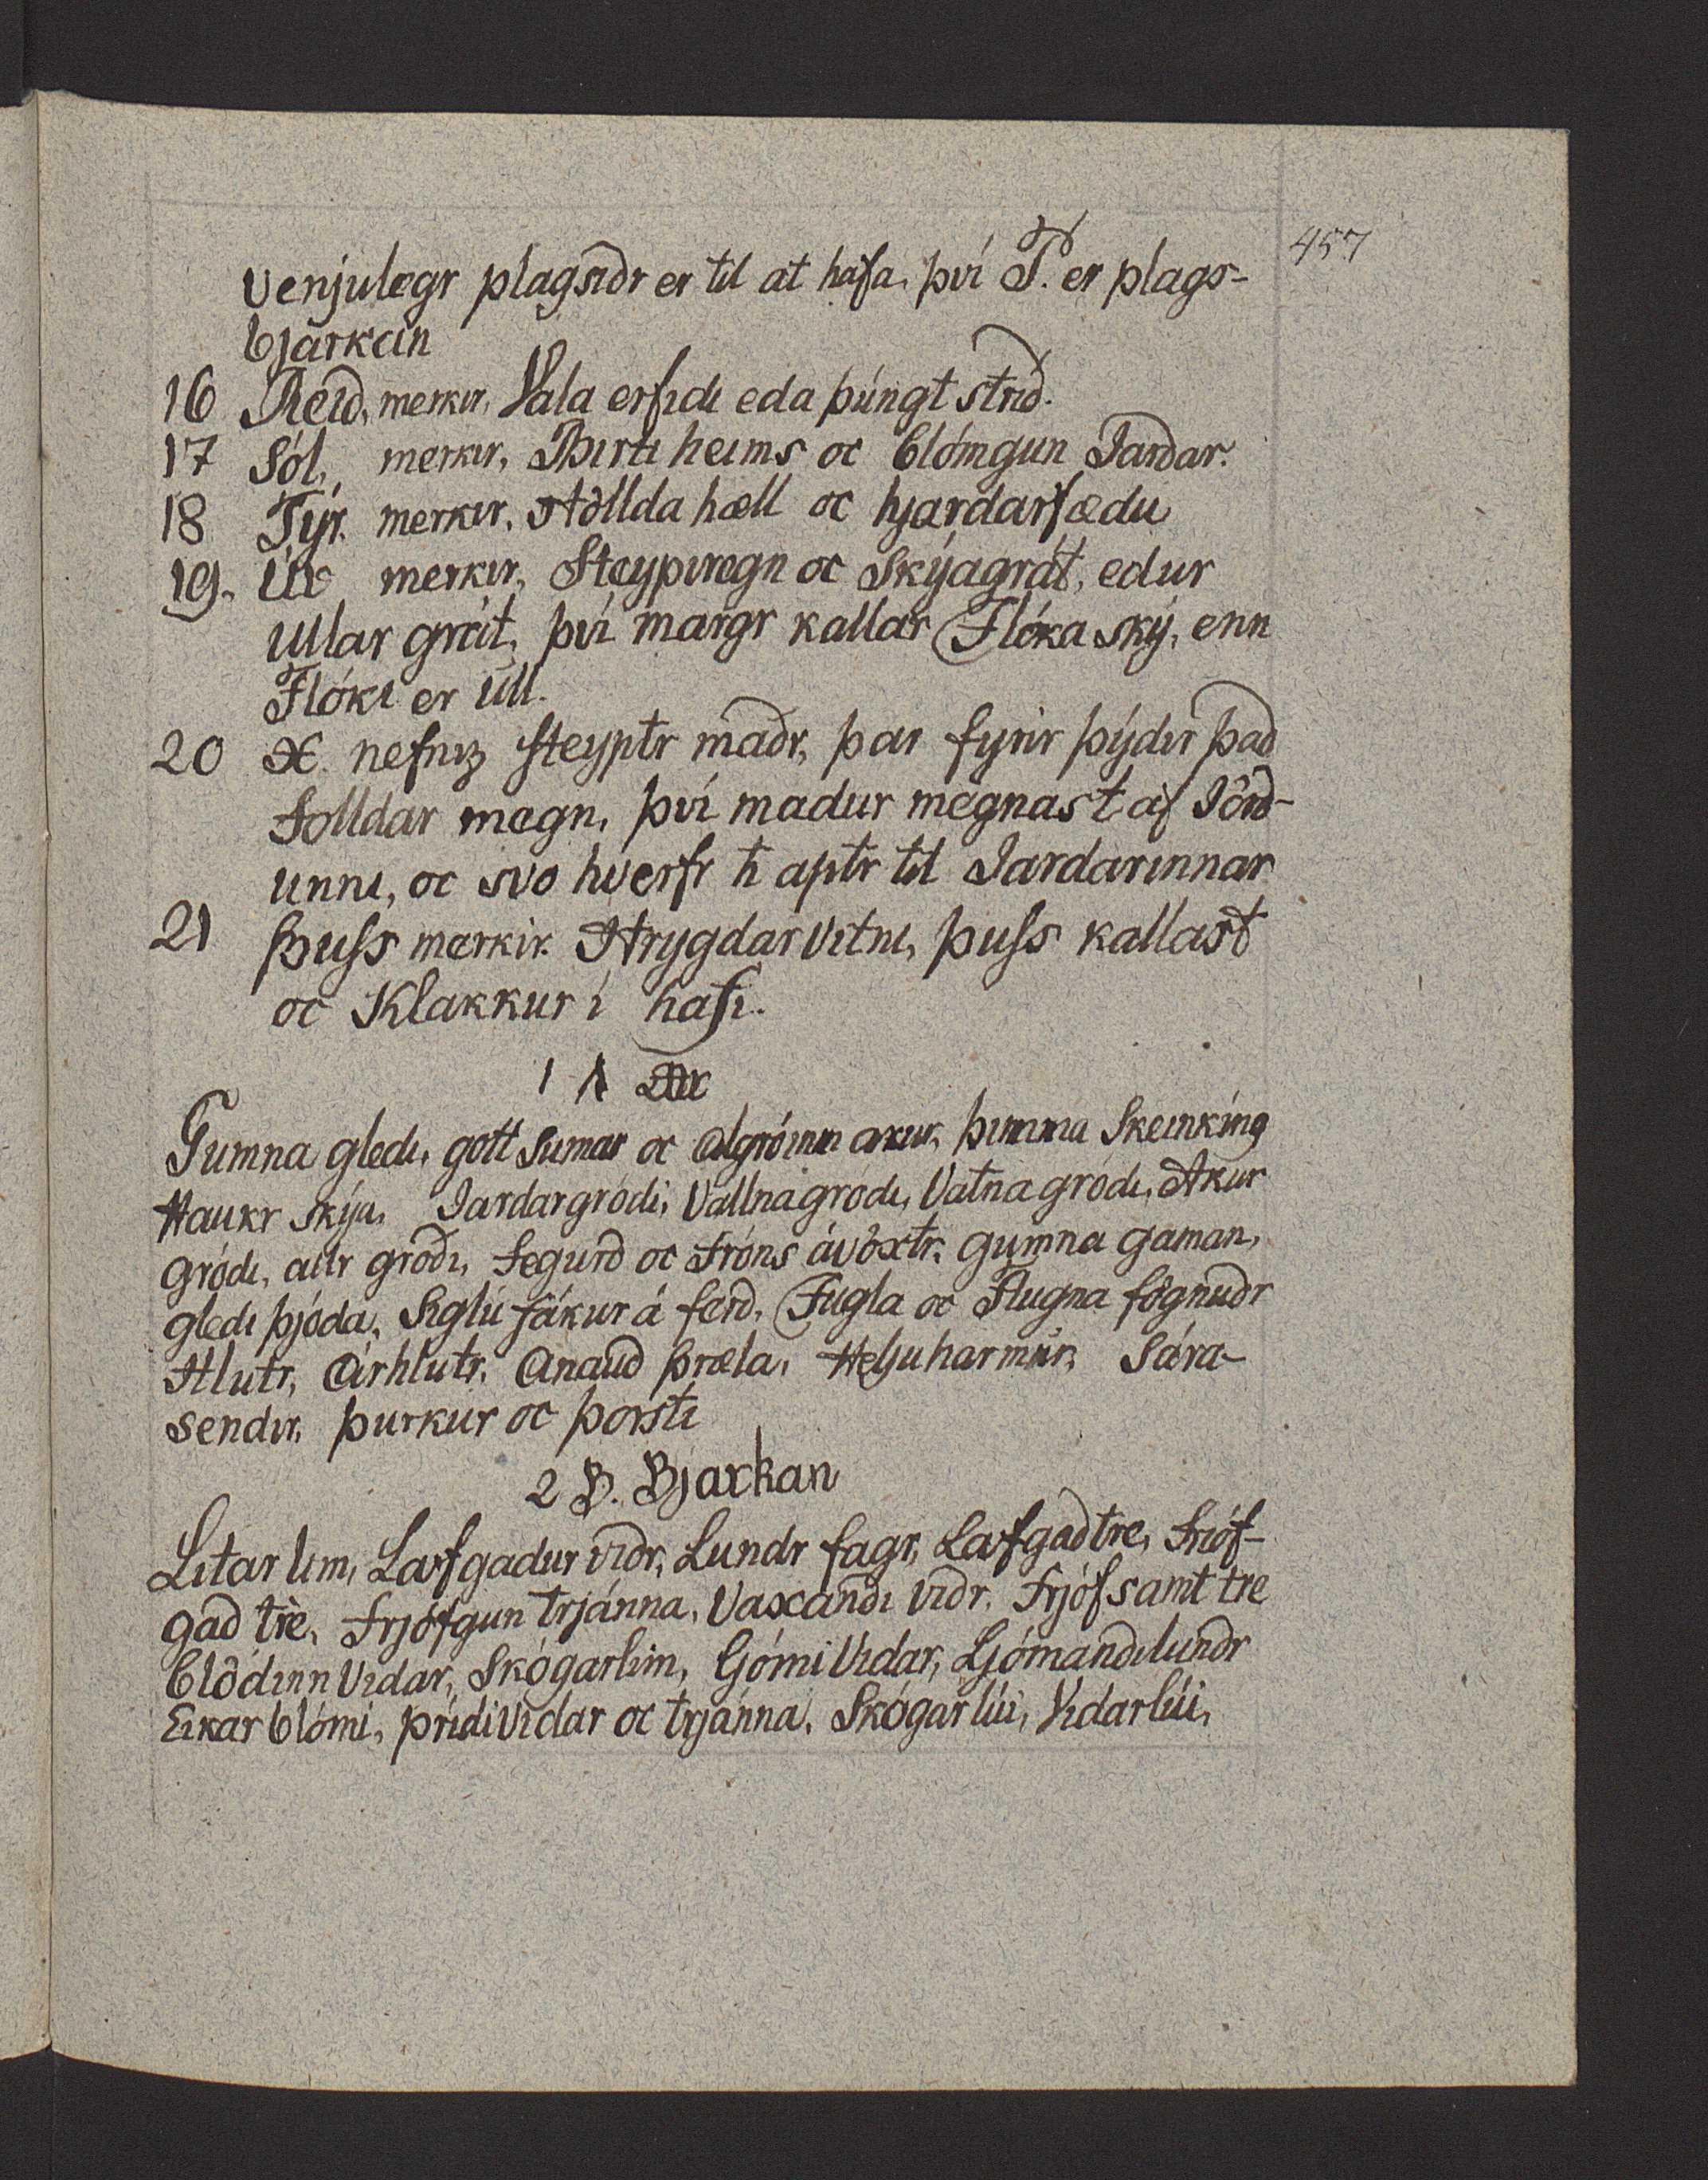 457
venjulegr plagsiðr er til at hafa, því P. er plags-
bjarkan
16 Reið, merkir, Vala erfidi eda þúngt strið.
17 Sól, merkir, Birti heims oc blómgun Iardar.
18 Týr. merkir. Höllda hæll oc hjardarfædu
19. Úr merkir, Steypiregn oc Skýagrát, edur
Ullar grát, því margr kallar Flóka ský, enn
Flóki er Ull.
20 X. nefniz steyptr maðr, þar fyrir þýdir það
Folldar magn, því madur magnast af Iörd-
unni, oc svo hverfr h aptr til Iardarinnar
21 Þuss merkir. Hrygdar vitni, þuss kallast
oc Klakkur i hafi.
1 A
Gumna gledi, gott Sumar oc algróinn akur, þimma Skeinking
Haukr skýa, Iardargródi, Vallnagródi, Vatna gródi, Akur
gródi, allr gródi, Fegurð oc Fróns ávöxtr, gumna gaman,
gledi þjóda, Siglu fákur á ferð, Fugla oc Flugna fögnuðr
Hlutr, Árhlutr, Anauð þræla, Heljuharmur, Sára-
sendir, þurkur oc þorsti
2 B. Bjarkan
Litar lim, Laufgadur viðr, Lundr fagr, Laufgað tre, Frióf-
gað trè, Frjófgun trjánna, Vaxandi viðr, Frjófsamt tre
blòdinn Vidar, Skógarlim, ljómi Vidar, Ljómandi lundr
Eikar blómi, prídi Vidar oc trjánna, Skógar líii, Vidarlíii,